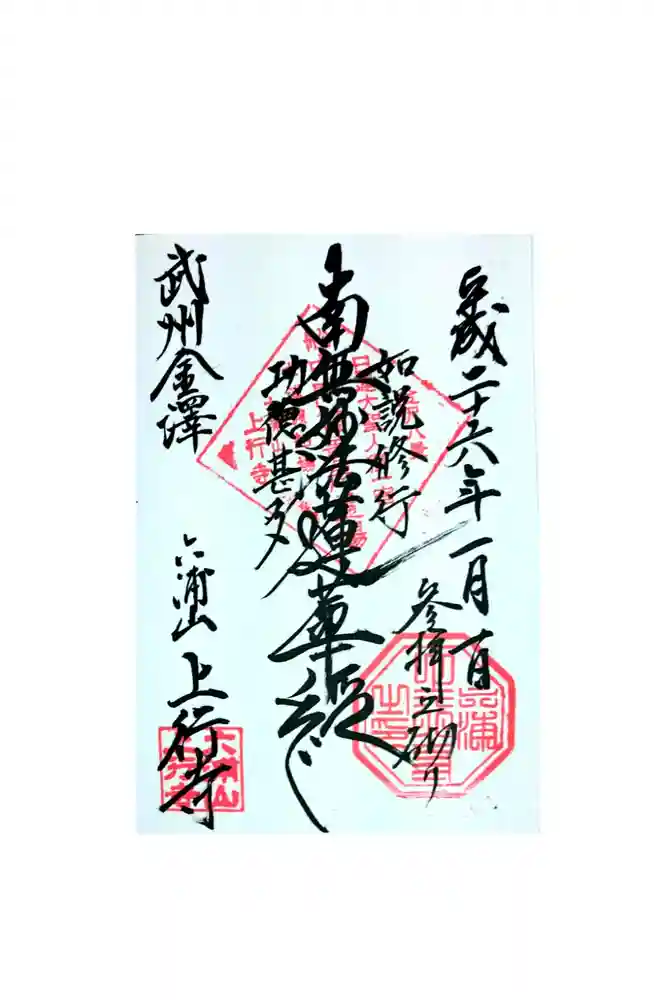 平成二十六年一月一日
参拝之砌り
如説修行
南無妙法蓮華経
功徳甚多
武州金澤
六浦山
上行寺
上行寺
六浦